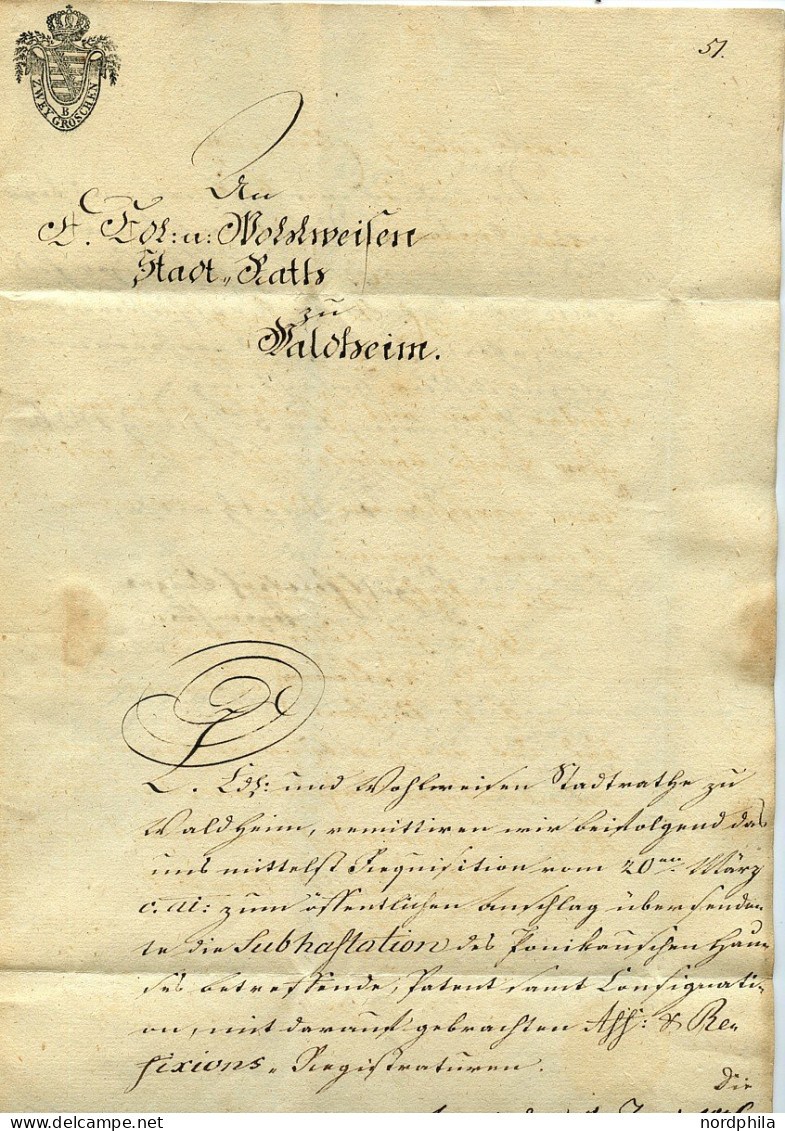 ZWEY GROSCHEN
B
51.
An
E. Edl: u: Wohlweisen
Stadt-Raths
zu
Waldheim.
E. Edl: und Wohlweisen Stadtrathe zu
Waldheim, remittiren wir beifolgend das
uns mittelst Requisition vom 20ten März
c. ai: zum öffentlichen Anschlag übersende-
te die Subhastation des Ponikauschen Hau-
ses betreffende, Patent samt Consignati-
on, mit darauf gebrachten Aff: & Re-
fixions-Registraturen.
Die
nordphila